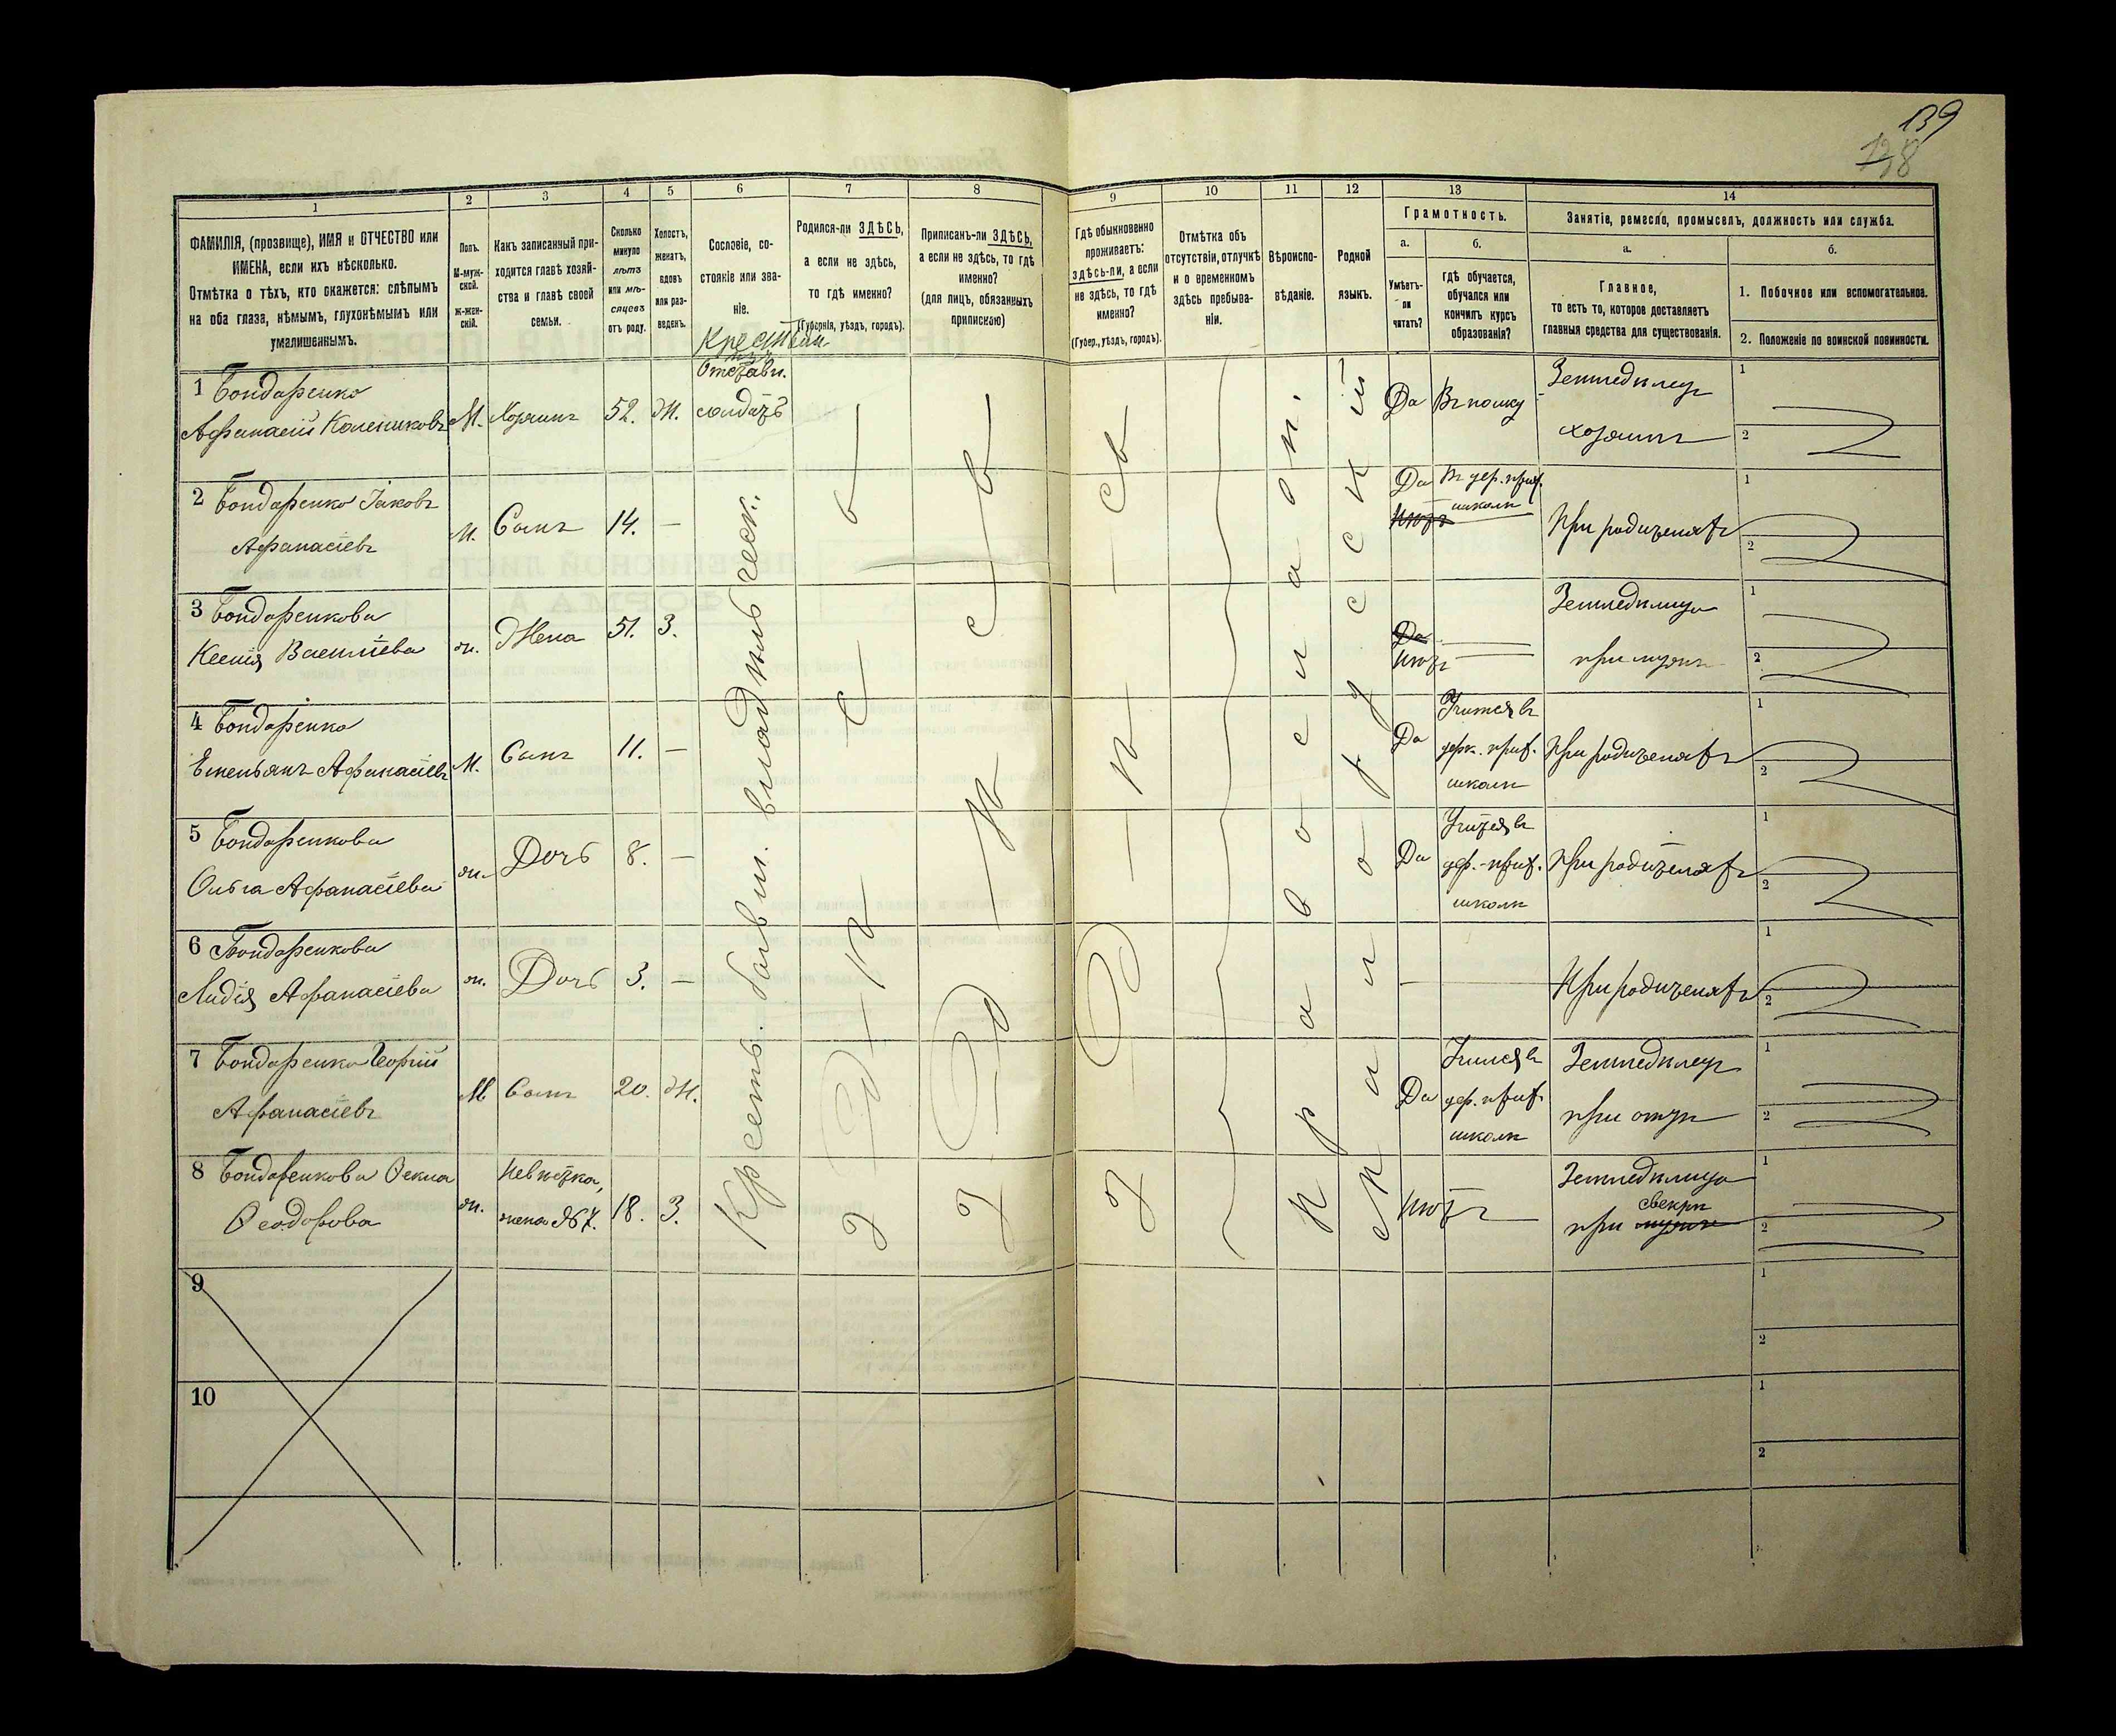 139
138
1
2
3
4
5
6
7
8
9
10
11
12
13
14
ФАМИЛІЯ, (прозвище), ИМЯ и ОТЧЕСТВО или
ИМЕНА, если ихъ нѣсколько.
Отмѣтка о тѣхъ, кто скажется: слѣпымъ
на оба глаза, нѣмымъ, глухонѣмымъ или
умалишеннымъ.
Полъ.
М-муж-
ской.
Ж-жен-
скій.
Какъ записанный при-
ходится главѣ хозяй-
ства и главѣ своей
семьи.
Сколько
минуло
лѣтъ
или мѣ-
сяцевъ
отъ роду.
Холостъ,
женатъ,
вдовъ
или раз-
веденъ.
Сословіе, со-
стояніе или зва-
ніе.
Родился-ли ЗДѢСЬ,
а если не здѣсь,
то гдѣ именно?
(Губернія, уѣздъ, городъ).
Приписанъ-ли ЗДѢСЬ,
а если не здѣсь, то гдѣ
именно?
(для лицъ, обязанныхъ
припискою)
Гдѣ обыкновенно
проживаетъ:
здѣсь-ли, а если
не здѣсь, то гдѣ
именно?
(Губер., уѣздъ, городъ).
Отмѣтка объ
отсутствіи, отлучкѣ
и о временномъ
здѣсь пребыва-
ніи.
Вѣроиспо-
вѣданіе.
Родной
языкъ.
Грамотность.
а.
Умѣетъ-
ли
читать?
б.
гдѣ обучается,
обучался или
кончилъ курсъ
образованія?
Занятіе, ремесло, промыселъ, должность или служба.
а.
Главное,
то есть то, которое доставляетъ
главныя средства для существованія.
б.
1. Побочное или вспомогательное.
2. Положеніе по воинской повинности.
1 Бондаренко
Афанасій Колениковъ
М. Хозяинъ 52. Ж.
Отставн.
солдатъ
Да
Земледѣлец
хозяинъ
1
2
2 Бондаренко Іаковъ
Афанасіевъ
М. Сынъ 14. —
Да
Нѣтъ
школѣ
При родителяхъ
1
2
3 Бондаренкова
Ксенія Василіева
ж. Жена 51. З.
Да
Нѣтъ
Земледѣлица
при мужѣ
1
2
4 Бондаренко
Емельянъ Афанасіевъ
М. Сынъ 11. —
Да
Учится въ
церк. прих.
школѣ
При родителяхъ
1
2
5 Бондаренкова
Ольга Афанасіева
ж. Дочь 8. —
Да
Учится въ
цер.-прих.
школѣ
При родителяхъ
1
2
6 Бондаренкова
Лидія Афанасіева
ж. Дочь 3. —
—
При родителяхъ
1
2
7 Бондаренко Георгій
Афанасіевъ
М Сынъ 20. Ж.
Да
Учился въ
цер. прих
школѣ
Земледѣлец
при отцѣ
1
2
8 Бондаренкова Ѳекла
Ѳеодорова
ж.
Невѣстка,
жена №7.
18. З.
Нѣтъ
Земледѣлица
свекрѣ
при мужѣ
1
2
Крестъ. бывш. владѣльческ.
Здѣсь
Здѣсь
Здѣсь
Православн.
Малорусский
9
1
2
10
1
2